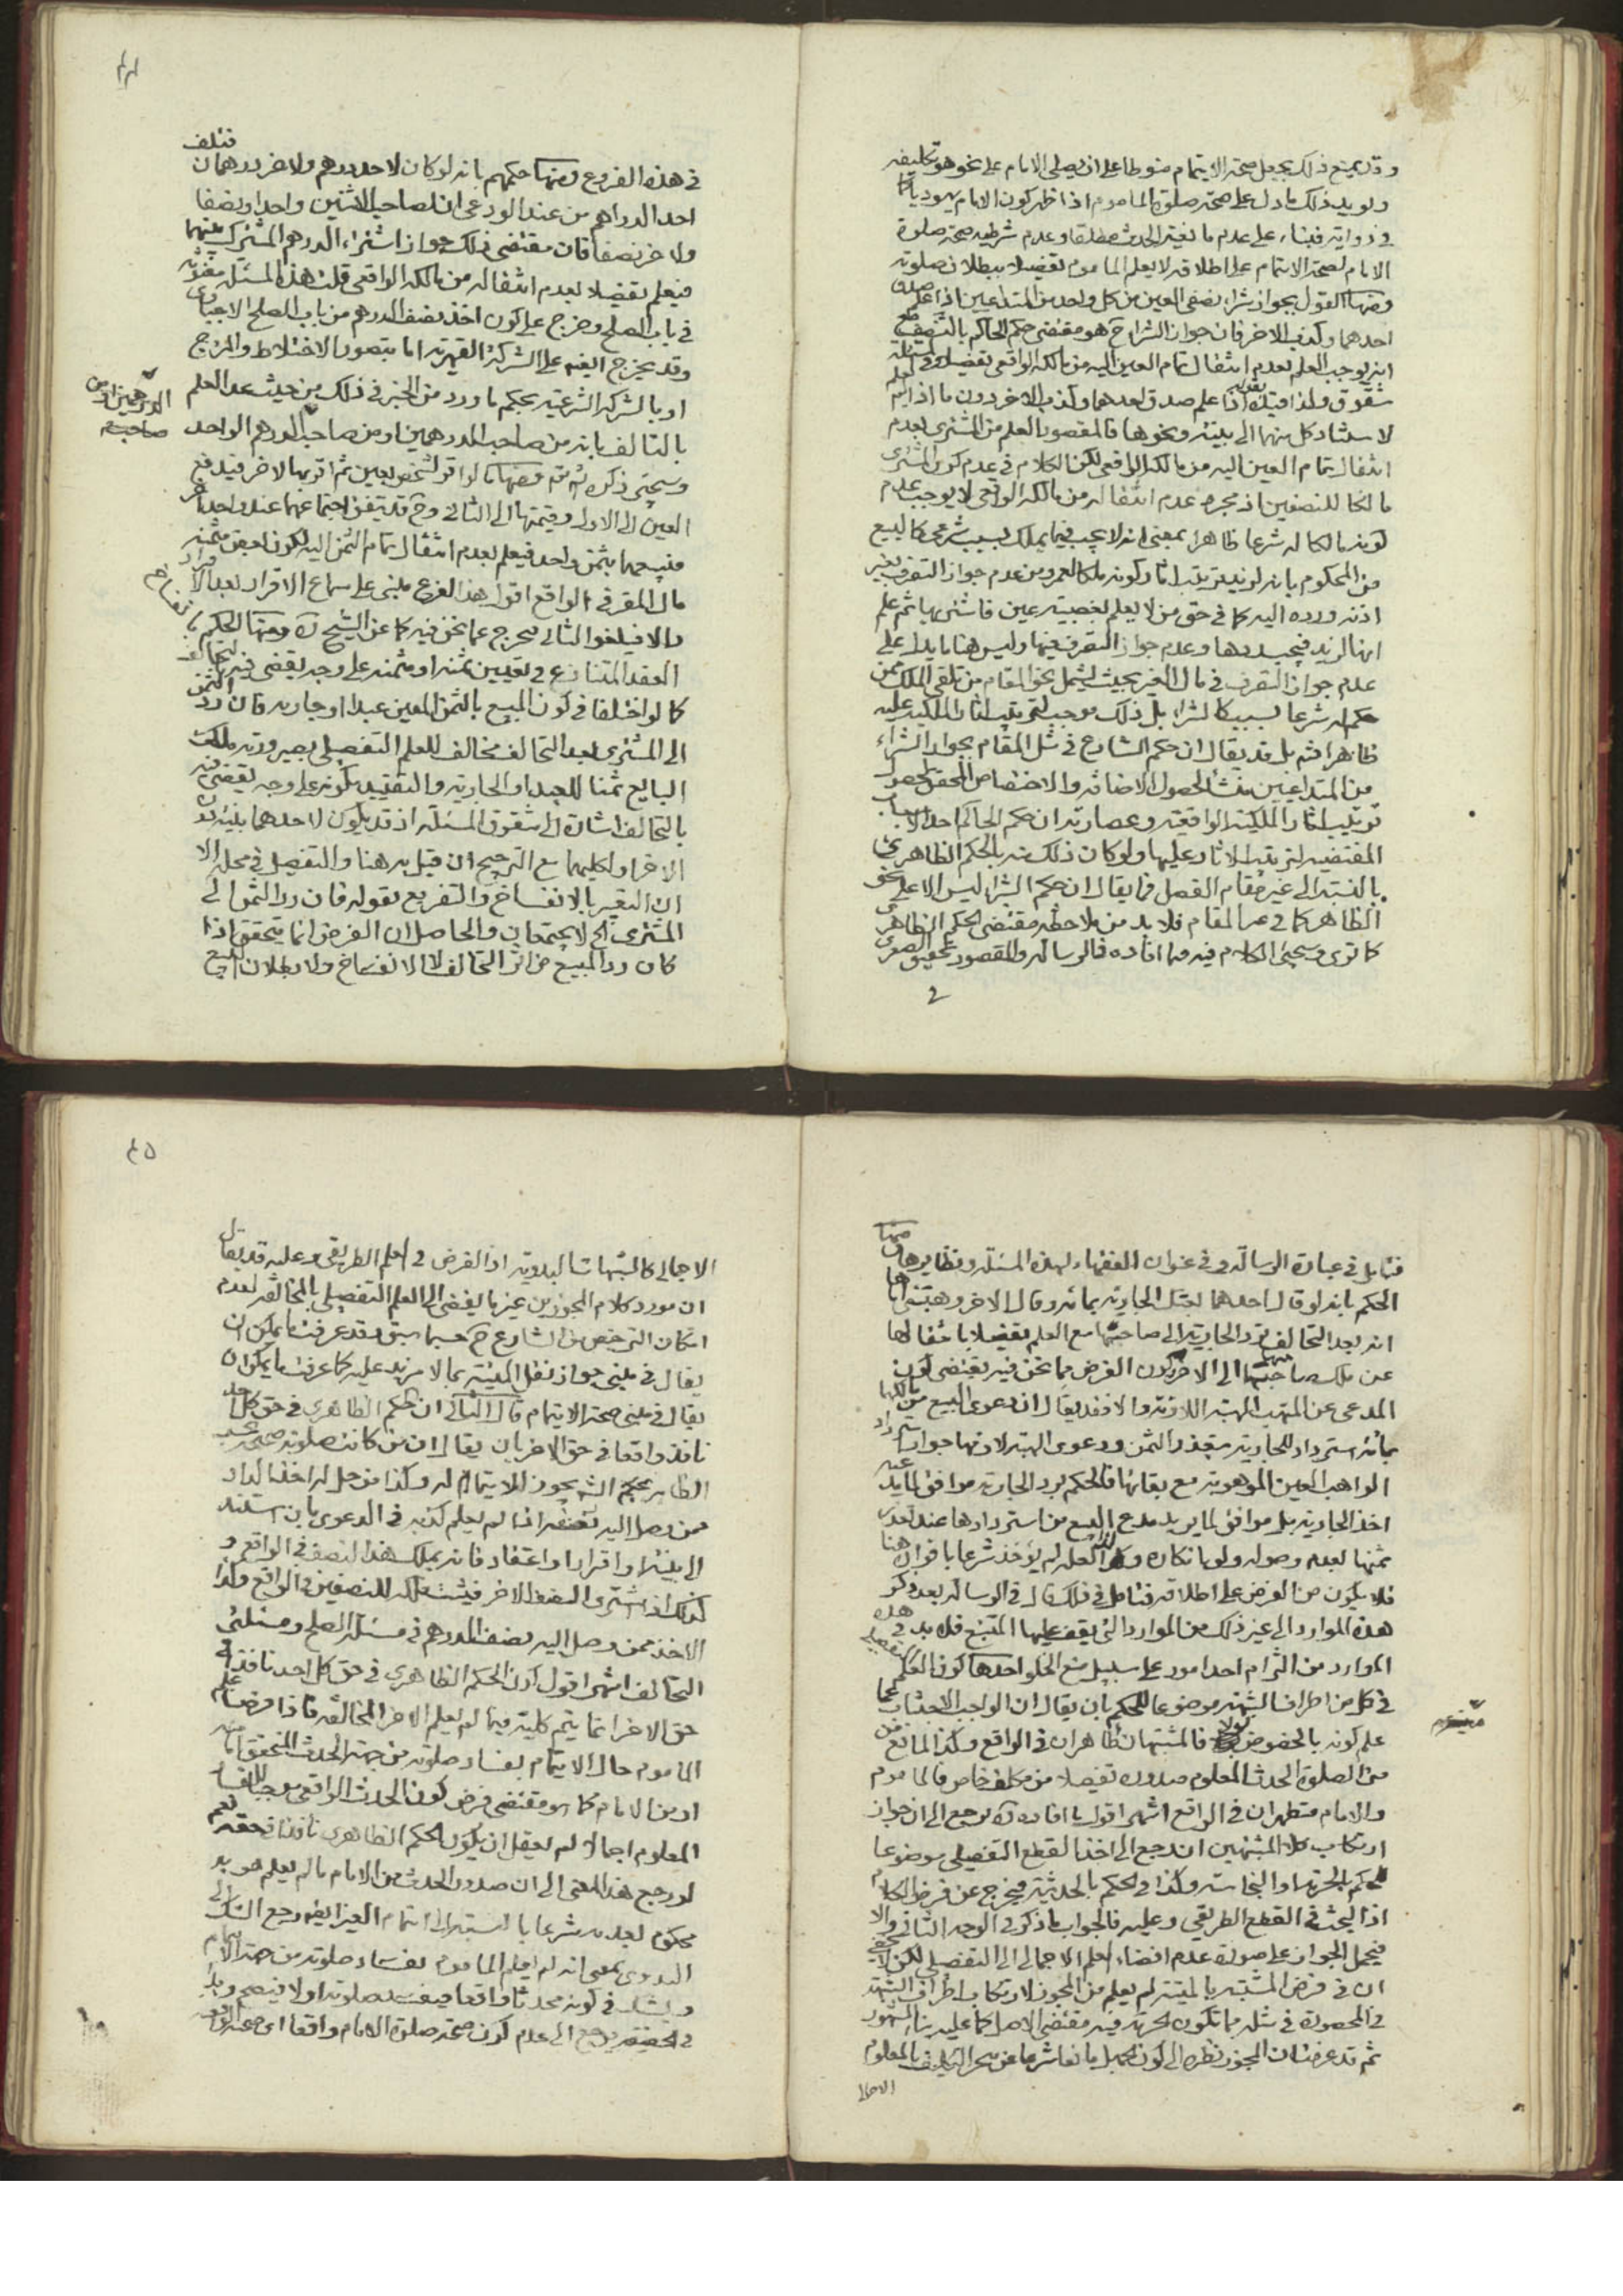 وقد يمنع ذلك بجعل صحة الايتمام منوطا على ان يصلى الامام على نحو هو تكليفه
ويويد ذلك ما دل على صحة صلوة الماموم اذا ظهر كون الامام يهوديا
على عدم مانعية الحدث مطلقا وعدم شرطية صحة صلوة
الامام لصحة الايتمام على اطلاقه لا يعلم الماموم تفصيلا ببطلان صلوته
ومنها القول بجواز شراء نصفى العين من كل واحد من المتداعيين اذا علم صدق
احدهما وكذب الاخر فان جواز الشراء ح هو مقتضى حكم الحاكم بالتنصيف
انه يوجب العلم بعدم انتقال تمام العين اليه من مالكه الواقعى تفصيلا
شقوق ولذا قيده بقوله اذا علم صدق احدهما وكذب الاخر دون ما اذا لم يعلم
لاستناد كل منهما الى بينة ونحوها فالمقصود العلم من المشترى بعدم
انتقال تمام العين اليه من مالكه الواقعى لكن الكلام فى عدم كون المشترى
مالكا للنصفين اذ مجرد عدم انتقاله من مالكه الواقعى لا يوجب عدم
كونه مالكا له شرعا ظاهرا بمعنى انه لا يجب فيما يملك بسبب شرعى كالبيع
من المحكوم بانه لزيد ترتيب اثار كونه ملكا لعمرو من عدم جواز التصرف بغير
اذنه ورده اليه كما فى حق من لا يعلم بغصبية عين فاشترى بها ثم علم
انها لزيد فيجب ردها وعدم جواز التصرف فيها وليس هنا ما يدل على
عدم جواز التصرف فى مال الغير بحيث يشمل نحو المقام من تلقى الملك ممن
حكم له شرعا بسبب كالشراء بل ذلك موجب لترتيب اثار الملكية عليه
ظاهرا ثم بل قد يقال ان حكم الشارع فى مثل المقام بجواز الشراء
من المتداعيين منشأ لحصول الاضافة والاختصاص المحقق لحصول
ترتيب اثار الملكية الواقعية وعصارته ان حكم الحاكم احد الاسباب
المقتضية لترتيب الاثار عليها ولو كان ذلك منه بالحكم الظاهرى
بالنسبة الى غير مقام الفصل فما يقال ان حكم الشراء ليس الا على نحو
الظاهر كما فى المقام فلا بد من ملاحظة مقتضى الحكم الظاهرى
كما ترى وسيجئ الكلام فيه وما افاده فى الرسالة والمقصود تحقيق الصغرى
فى
فى هذه الفروع ومنها حكمهم بانه لو كان لاحد درهم ولاخر درهمان فتلف
احد الدراهم من عند الودعى ان لصاحب الاثنين واحدا ونصفا
ولاخر نصفا فان مقتضى ذلك جواز اشتراء الدرهم المشترك بينهما
فيعلم تفصيلا بعدم انتقاله من مالكه الواقعى قلت هذه المسئلة مفروضة
فى باب الصلح وخرج على كون اخذ نصف الدرهم من باب الصلح الاجبارى
وقد يخرج ايضا على الشركة القهرية اما بتصور الاختلاط والمزج
او بالشركة الشرعية بحكم ما ورد من الخبر فى ذلك من حيث عدم العلم
بالتالف بانه من صاحب الدرهمين او من صاحب الدرهم الواحد
وسيجئ ذكره ومنها ما لو اقر لشخص بعين ثم اقر بها لاخر فيدفع
العين الى الاول وقيمتها الى الثانى وح قد يتفق اجتماعهما عند واحد اخر
فيبيعهما بثمن واحد فيعلم بعدم انتقال تمام الثمن اليه لكون بعض مثمنه
مال المقر فى الواقع اقول هذا الفرع مبنى على سماع الاقرار بعد الاقرار
والا فيلغوا الثانى فيخرج عما نحن فيه كما عن الشيخ ره ومنها الحكم بانفساخ
العقد المتنازع فى تعيين ثمنه او مثمنه على وجه يقضى فيه بالتحالف
كما لو اختلفا فى كون المبيع بالثمن المعين عبدا او جارية فان رد الثمن
الى المشترى بعد التحالف مخالف للعلم التفصيلى بصيرورته ملك
البايع ثمنا للعبد او الجارية والتقييد بكونه على وجه يقضى فيه
بالتحالف اشارة الى شقوق المسئلة اذ قد يكون لاحدهما بينة دون
الاخر او لكليهما مع الترجيح ان قيل به هنا والتفصيل فى محله الا
ان التعبير بالانفساخ والتفريع بقوله فان رد الثمن الى
المشترى الخ لا يجتمعان والحاصل ان الفرض انما يتحقق اذا
كان رد المبيع من اثر التحالف لا الانفساخ ولا بطلان البيع
فتامل فى عبارة الرسالة وفى عنوان الفقهاء لهذه المسئلة ونظايرها ومنها
الحكم بانه لو قال احدهما بعتك الجارية بمائة وقال الاخر وهبتنى اياها
انه بعد التحالف ترد الجارية الى صاحبها مع العلم تفصيلا بانتقالها
عن ملك صاحبها الى الاخر كون الفرض مما نحن فيه يقتضى كون
المدعى عن المتهب الهبة اللازمة والا فقد يقال ان دعوى البيع من مالكها
بمائة استرداد للجارية مع تعذر الثمن ودعوى الهبة لازمها جواز استرداد
الواهب العين الموهوبة مع بقائها فالحكم برد الجارية موافق لما يدعيه
اخذ الجارية بل موافق لما يريد مدعى البيع من استردادها عند تعذر
ثمنها لعدم وصوله ولو بانكاره ولعله لم يؤخذ شرعا باقراره هنا
فلا يكون من الفرض على اطلاقه فتامل فى ذلك قال فى الرسالة بعد ذكر
هذه الموارد الى غير ذلك من الموارد التى يقف عليها المتتبع فلا بد فى هذه
الموارد من التزام احد امور على سبيل منع الخلو احدها كون العلم التفصيلى
فى كل من اطراف الشبهة موضوعا للحكم بان يقال ان الواجب الاجتناب عما
علم كونه بالخصوص بولا فالمشتبهان طاهران فى الواقع وكذا المانع
من الصلوة الحدث المعلوم صدوره تفصيلا من مكلف خاص فالماموم
والامام متطهران فى الواقع انتهى اقول ما افاده ره يرجع الى ان جواز
ارتكاب كلا المشتبهين ان رجع الى اخذ القطع التفصيلى موضوعا
للحكم بالحرمة او النجاسة وكذا فى الحكم بالحدثية فيخرج عن فرض الكلام
اذ البحث فى القطع الطريقى وعليه فالجواب ما ذكر فى الوجه الثانى والا
فيحمل الجواز على صورة عدم افضاء العلم الاجمالى الى التفصيلى لكن لا يخفى
ان فى فرض المشتبه بالميتة لم يعلم من المجوز لارتكاب اطراف الشبهة
فى المحصورة فى مثله مما تكون الحرمة فيه مقتضى الاصل كما عليه بناء المشهور
ثم قد عرفت ان المجوز نظره الى كون الجهل مانعا شرعا عن تنجز التكليف بالمعلوم
الاجمالى
الاجمالى كالشبهات البدوية اذ الفرض فى العلم الطريقى وعليه قد يقال
ان مورد كلام المجوزين غير ما يفضى الى العلم التفصيلى بالمخالفة لعدم
امكان الترخيص من الشارع ح حسبما سبق وقد عرفت ما يمكن ان
يقال فى مبنى جواز نقل الميتة بما لا مزيد عليه كما عرفت ما يمكن ان
يقال فى مبنى صحة الايتمام قال الثانى ان الحكم الظاهرى فى حق كل احد
نافذ واقعا فى حق الاخر بان يقال ان من كانت صلوته صحيحة بحسب
الظاهر بحكم الشرع يجوز الايتمام له وكذا من حل له اخذ الدار
ممن وصل اليه نصفه اذا لم يعلم كذبه فى الدعوى بان استند
الى بينة او اقرار او اعتقاد فانه يملك هذا النصف فى الواقع و
كذلك اذا اشترى النصف الاخر فيثبت ملكه للنصفين فى الواقع وكذا
الاخذ ممن وصل اليه نصف الدرهم فى مسئلة الصلح ومسئلتى
التحالف انتهى اقول كون الحكم الظاهرى فى حق كل احد نافذا فى
حق الاخر انما يتم كلية فيما لم يعلم الاخر المخالفة فاذا فرضنا علم
الماموم حال الايتمام بفساد صلوته من جهة الحدث المتحقق اما منه
او من الامام كما هو مقتضى فرض كون الحدث الواقعى موجبا للفساد
المعلوم اجمالا لم يعقل ان يكون الحكم الظاهرى نافذا فى حقه نعم
لو رجع هذا المعنى الى ان صدور الحدث من الامام ما لم يعلم هو به
محكوم بعدمه شرعا بالنسبة الى ايتمام الغير ايضا رجع الشك الى
البدوى بمعنى انه لم يعلم الماموم بفساد صلوته من جهة الايتمام
ويشك فى كونه محدثا واقعا فيفسد صلوته او لا فيصح وهذا
فى الحقيقة يرجع الى عدم كون صحة صلوة الامام واقعا